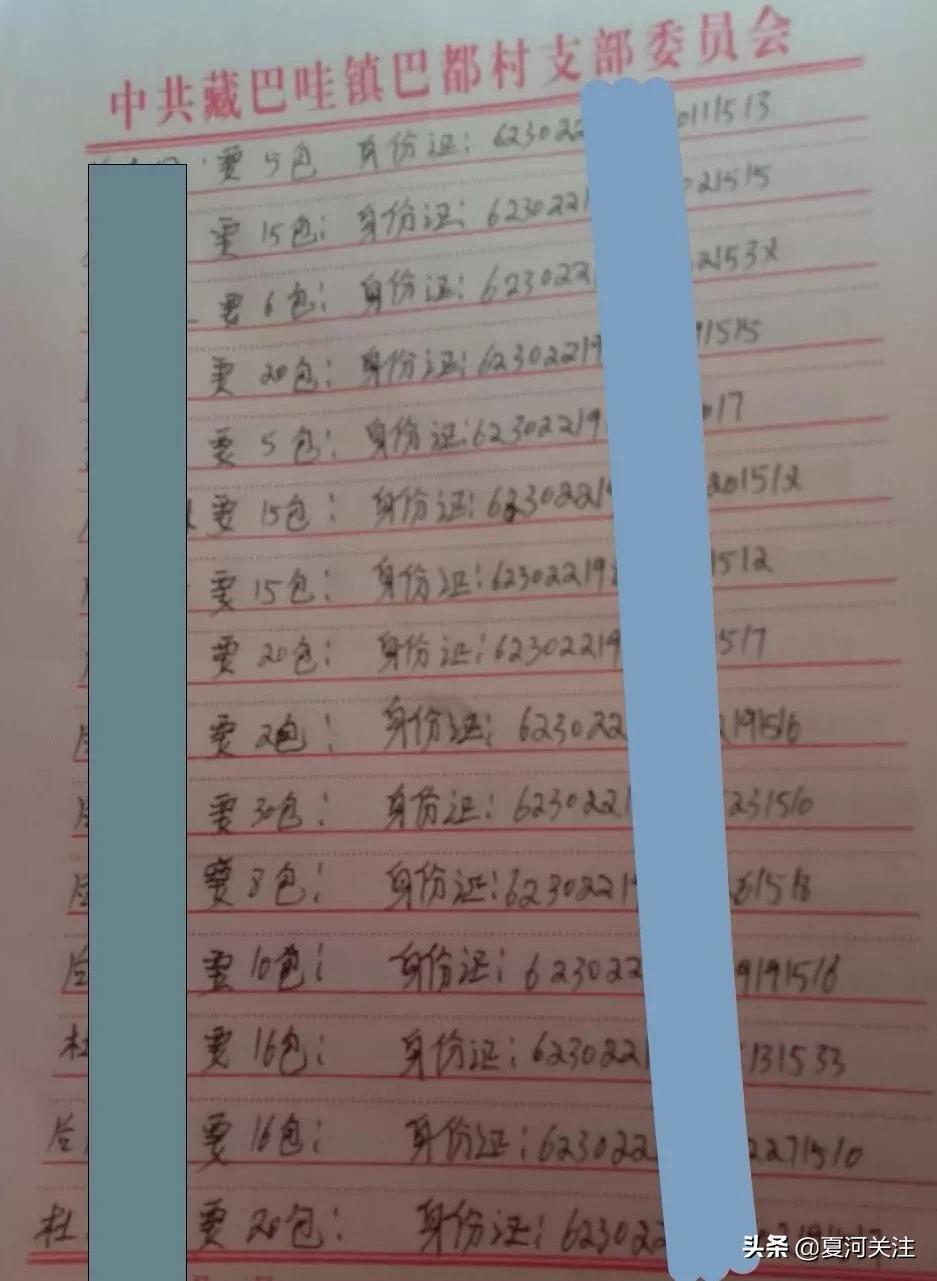 中共藏巴哇镇巴都村支部委员会
要 5包 身份证: 623022 0111513
要 15包: 身份证: 6230221 021515
要 6包: 身份证: 623022 2153X
要 20包: 身份证: 62302219 1515
要 5包: 身份证: 62302219 017
要 15包: 身份证: 6230221 201512
要 15包: 身份证: 62302219 1512
要 20包: 身份证: 62302219 517
要 2包: 身份证: 623022 191516
要 30包: 身份证: 6230221 231510
要 8包: 身份证: 6230221 61518
要 10包: 身份证: 623022 9191516
杜 要 16包: 身份证: 6230221 131533
要 16包: 身份证: 623022 2271510
杜 要 20包: 身份证: 623022
头条 @夏河关注